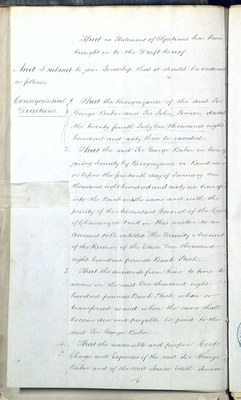 That no Statement of Objections has been
brought in to the Draft hereof
And I submit to your Lordship that it should be ordered
as follows
Consequential Directions.
1. That the Recognizance of the said Sir
George Baker and Sir John dated
the twenty fourth July One thousand eight
hundred and sixty three be vacated
2. That the said Sir George Baker in lieu of
giving security by Recognizance or Bond on
or before the day of January One
thousand eight hundred and sixty six transfer
into the Bank in the name and with the
privity of the Accountant General of the Court
of Chancery in trust in this matter to an
account to be entitled The Security Account
of the Receiver of the Estate One thousand
eight hundred pounds Bank Stock
3. That the dividends from time to time to
accrue on the said One thousand eight
hundred pounds Bank Stock when so
transferred as and when the same shall
become due and payable be paid to the
said Sir George Baker
4. That the reasonable and proper Costs
Charges and Expenses of the said Sir George
Baker and of the said